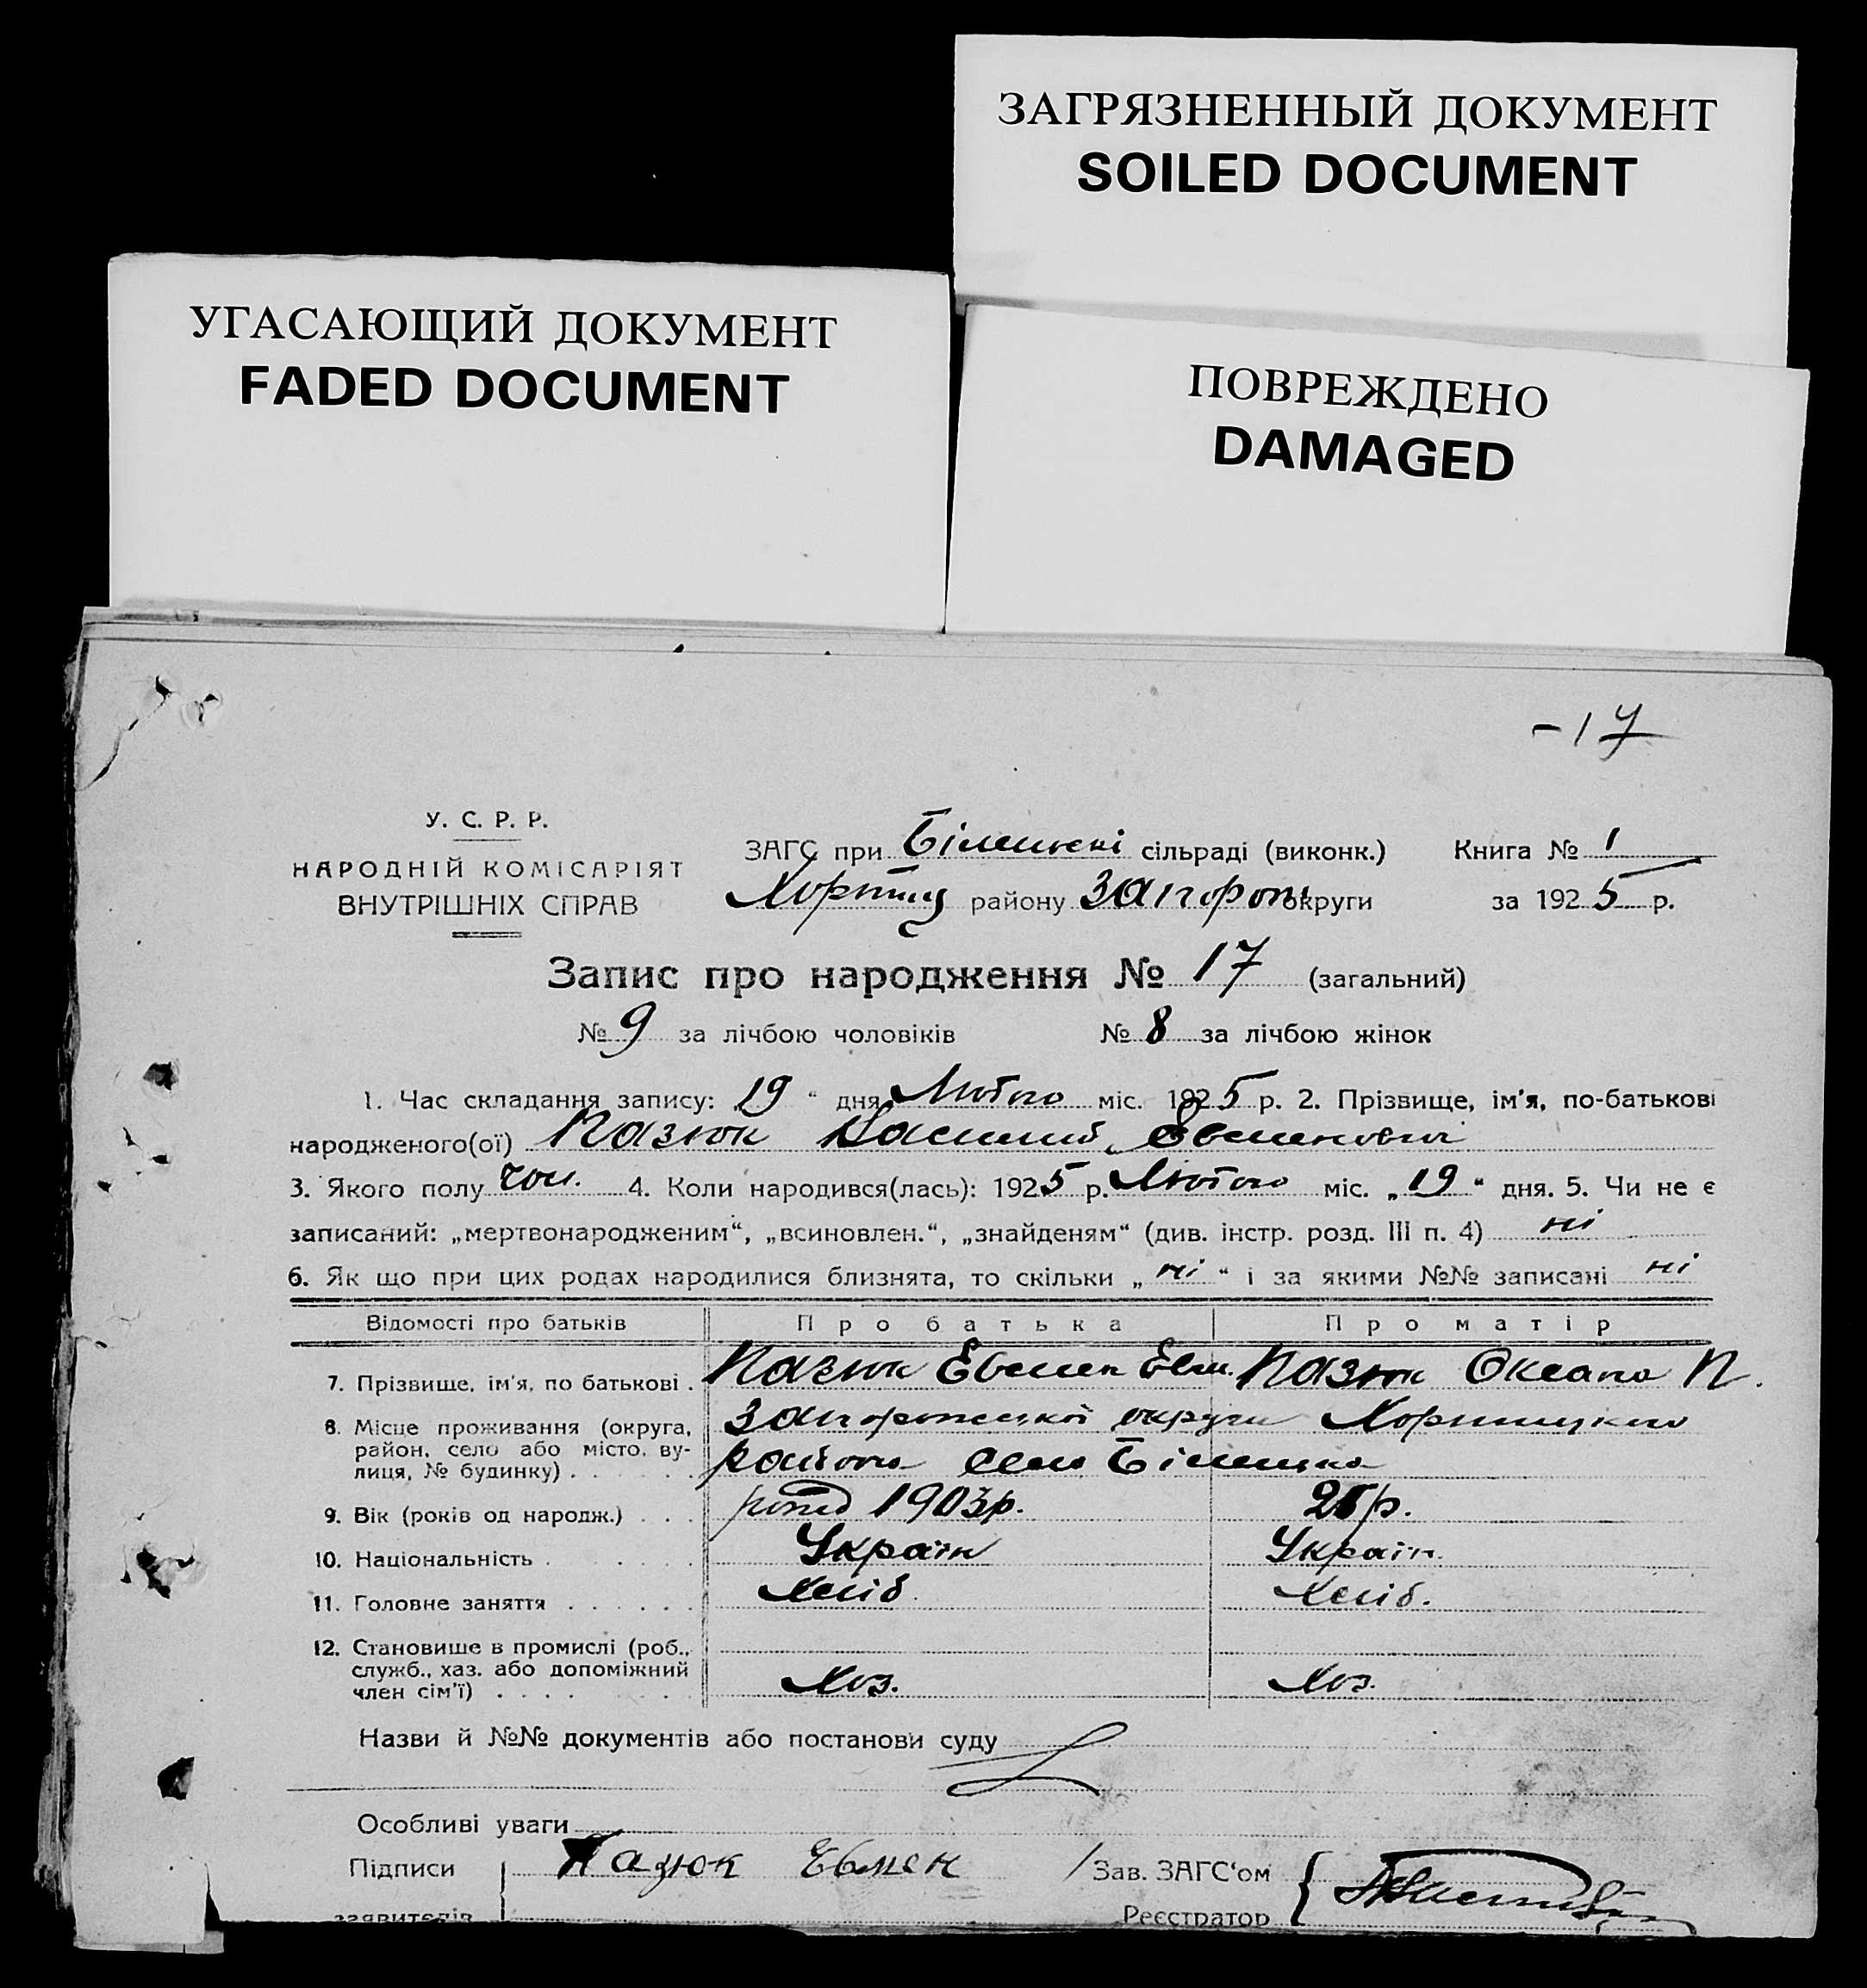 ЗАГРЯЗНЕННЫЙ ДОКУМЕНТ
SOILED DOCUMENT
УГАСАЮЩИЙ ДОКУМЕНТ
FADED DOCUMENT
ПОВРЕЖДЕНО
DAMAGED
-17
У. С. Р. Р.
НАРОДНІЙ КОМІСАРІЯТ
ВНУТРІШНІХ СПРАВ
ЗАГС при сільраді (виконк.) Книга № 1
Хортиц району Запорож округи за 1925 р.
Запис про народження № 17 (загальний)
№ 9 за лічбою чоловіків № 8 за лічбою жінок
1. Час складання запису: „19“ дня Лютого міс. 1925 р. 2. Прізвище, ім'я, по-батькові
народженого(ої) Пазюк Василий Евменович
3. Якого полу чол. 4. Коли народився(лась): 1925 р. Лютого міс. „19“ дня. 5. Чи не є
записаний: „мертвонародженим“, „всиновлен.“, „знайденям“ (див. інстр. розд. III п. 4) ні
6. Як що при цих родах народилися близнята, то скільки „ні“ і за якими №№ записані ні
Відомості про батьків Про батька Про матір
7. Прізвище, ім'я, по батькові . Пазюк Евмен Евм. Пазюк Оксана П.
8. Місце проживання (округа, район, село або місто, вулиця, № будинку) . Запорожської округи Хортицкого
района село Біленька
9. Вік (років од народж.) . . . 1903р. р.
10. Національність . . . . Україн Україн.
11. Головне заняття . . . . . . Хліб. Хліб.
12. Становище в промислі (роб.,
служб., хаз. або допоміжний
член сім'ї) . . . . Хоз. Хоз.
Назви й №№ документів або постанови суду
Особливі уваги
Підписи Пазюк Евмен Зав. ЗАГС'ом
заявителів Реєстратор